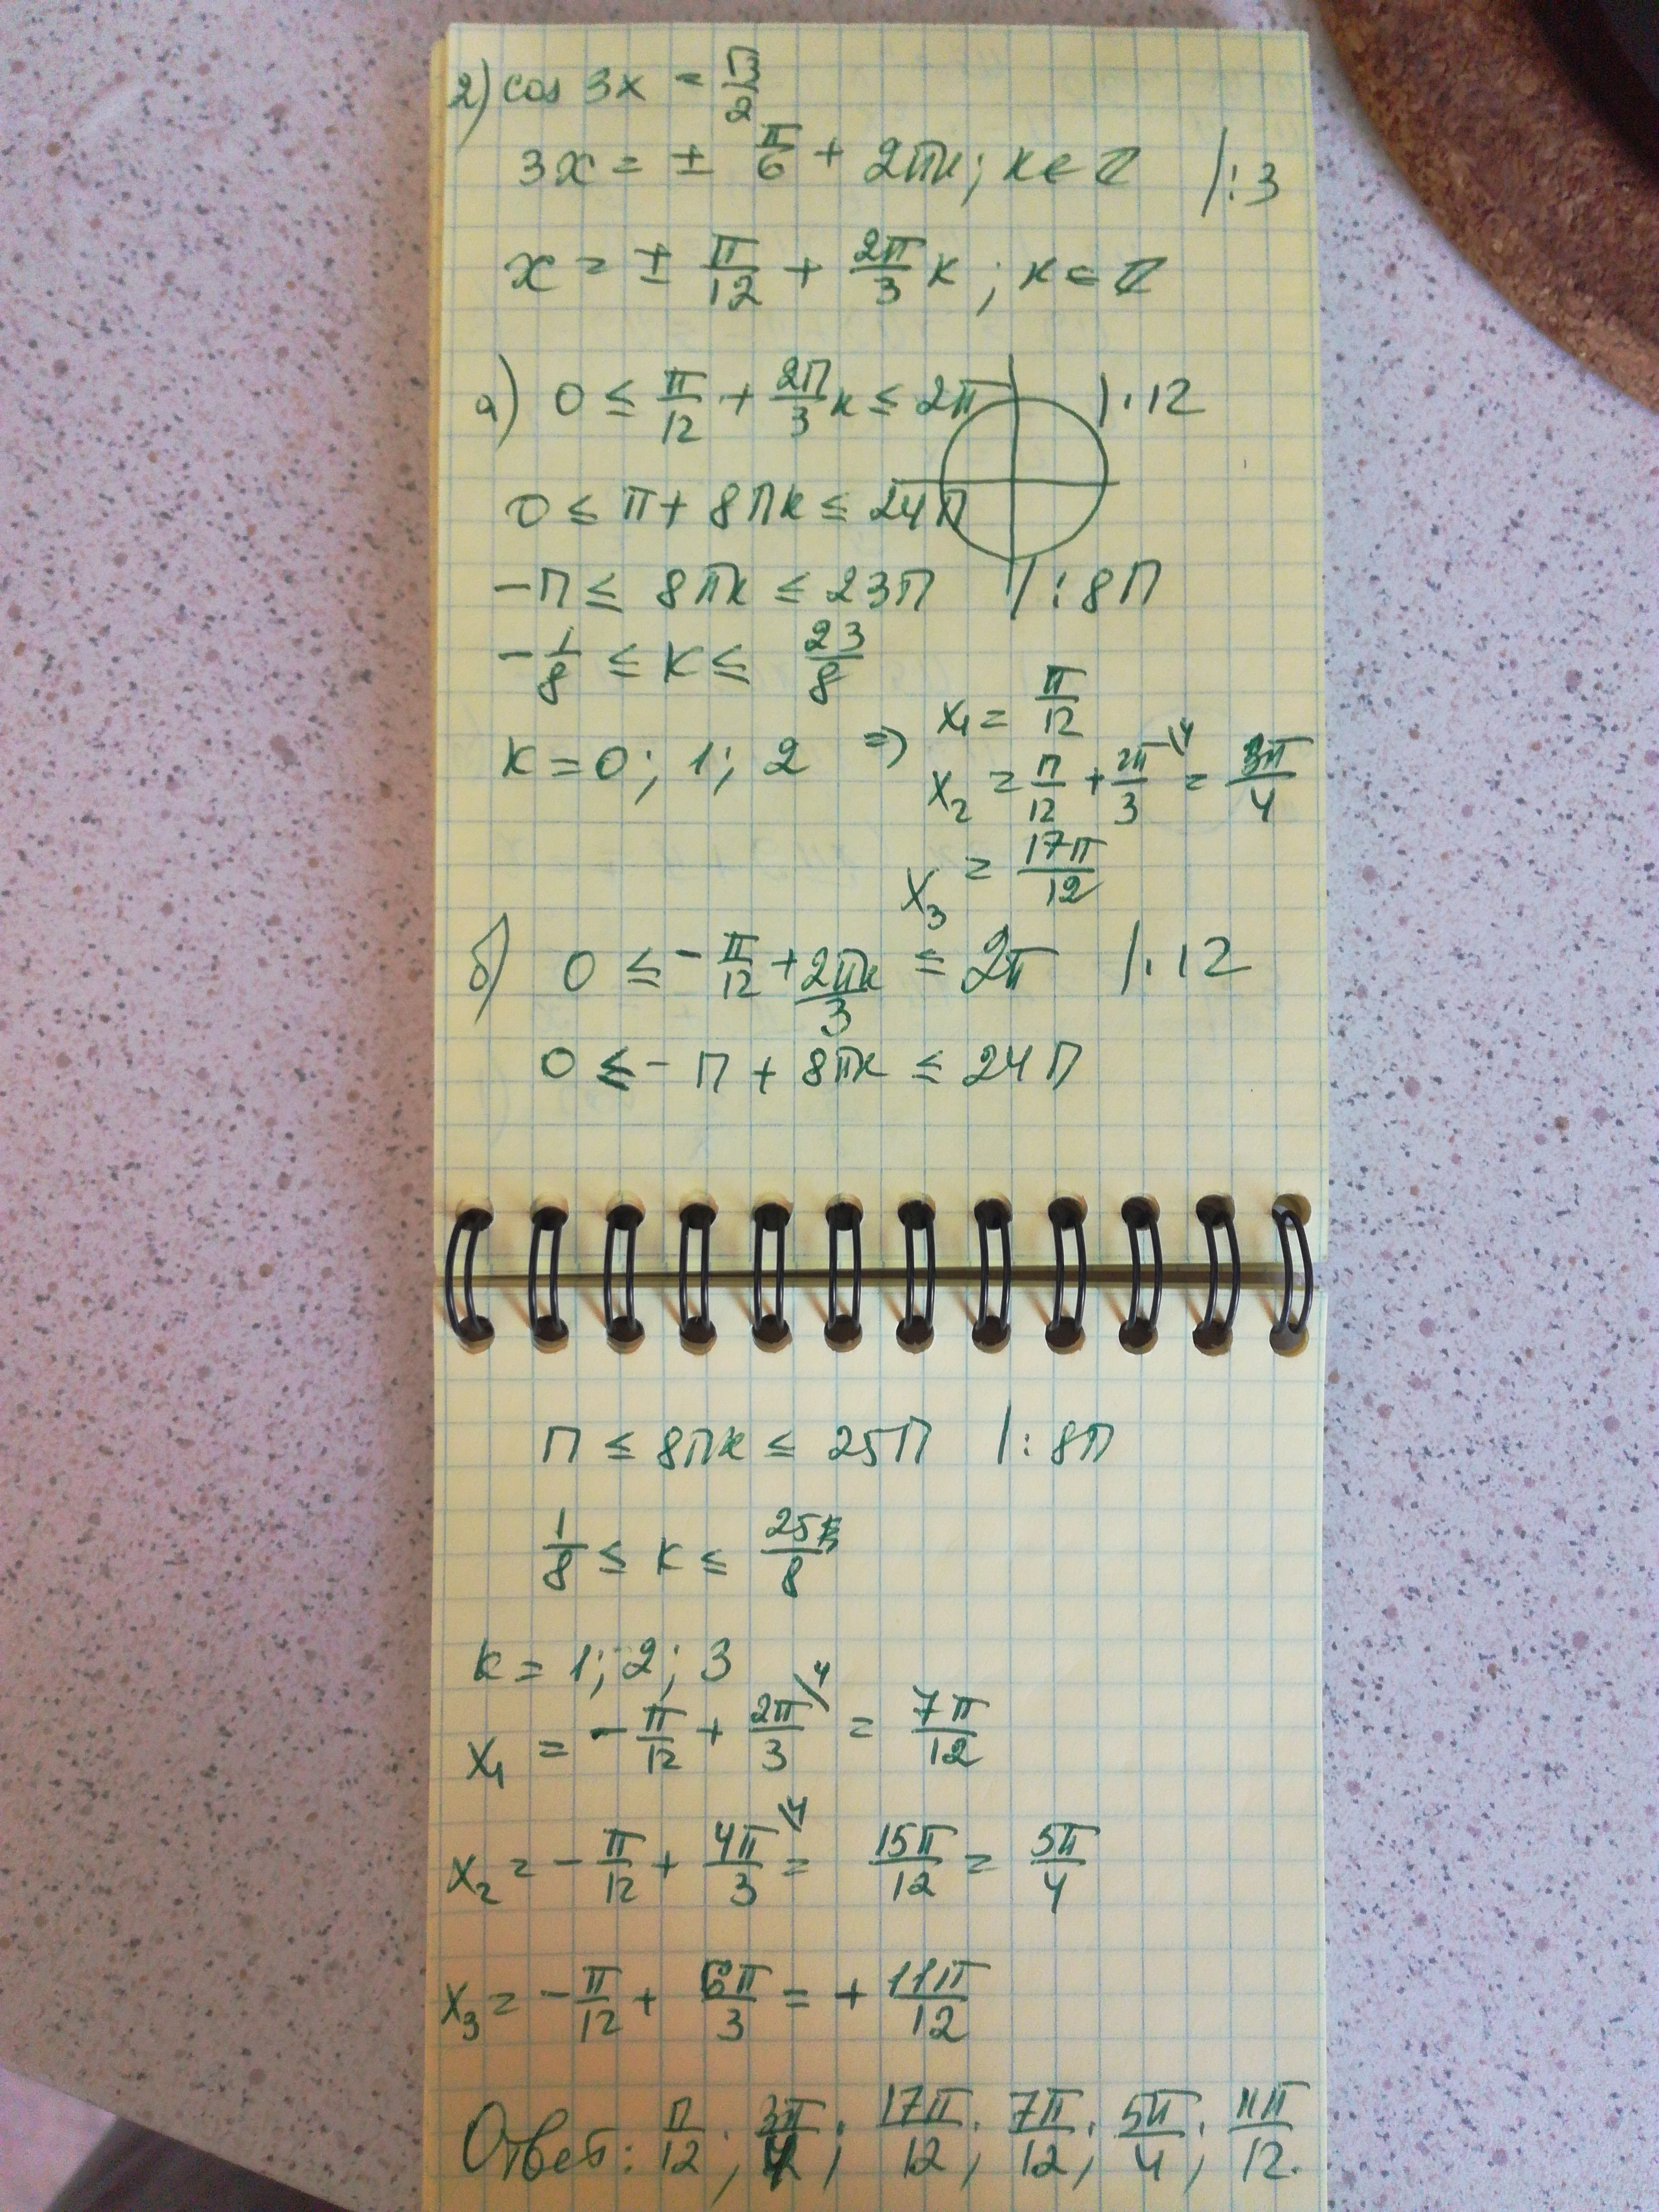 2) cos 3x = √3/2
3x = ± π/6 + 2πk; k ∈ Z /:3
x = ± π/12 + 2π/3 k; k ∈ Z
а) 0 ≤ π/12 + 2π/3 k ≤ 2π |·12
0 ≤ π + 8πk ≤ 24π
-π ≤ 8πk ≤ 23π /:8π
-1/8 ≤ k ≤ 23/8
k = 0; 1; 2 ⇒ x₁ = π/12
x₂ = π/12 + 2π/3 \4 = 3π/4
x₃ = 17π/12
б) 0 ≤ -π/12 + 2πk/3 ≤ 2π |·12
0 ≤ -π + 8πk ≤ 24π
π ≤ 8πk ≤ 25π |:8π
1/8 ≤ k ≤ 25/8
k = 1; 2; 3
x₁ = -π/12 + 2π/3 /4 = 7π/12
x₂ = -π/12 + 4π/3 \4 = 15π/12 = 5π/4
x₃ = -π/12 + 6π/3 = + 11π/12
Ответ: π/12; 3π/4; 17π/12; 7π/12; 5π/4; 11π/12.